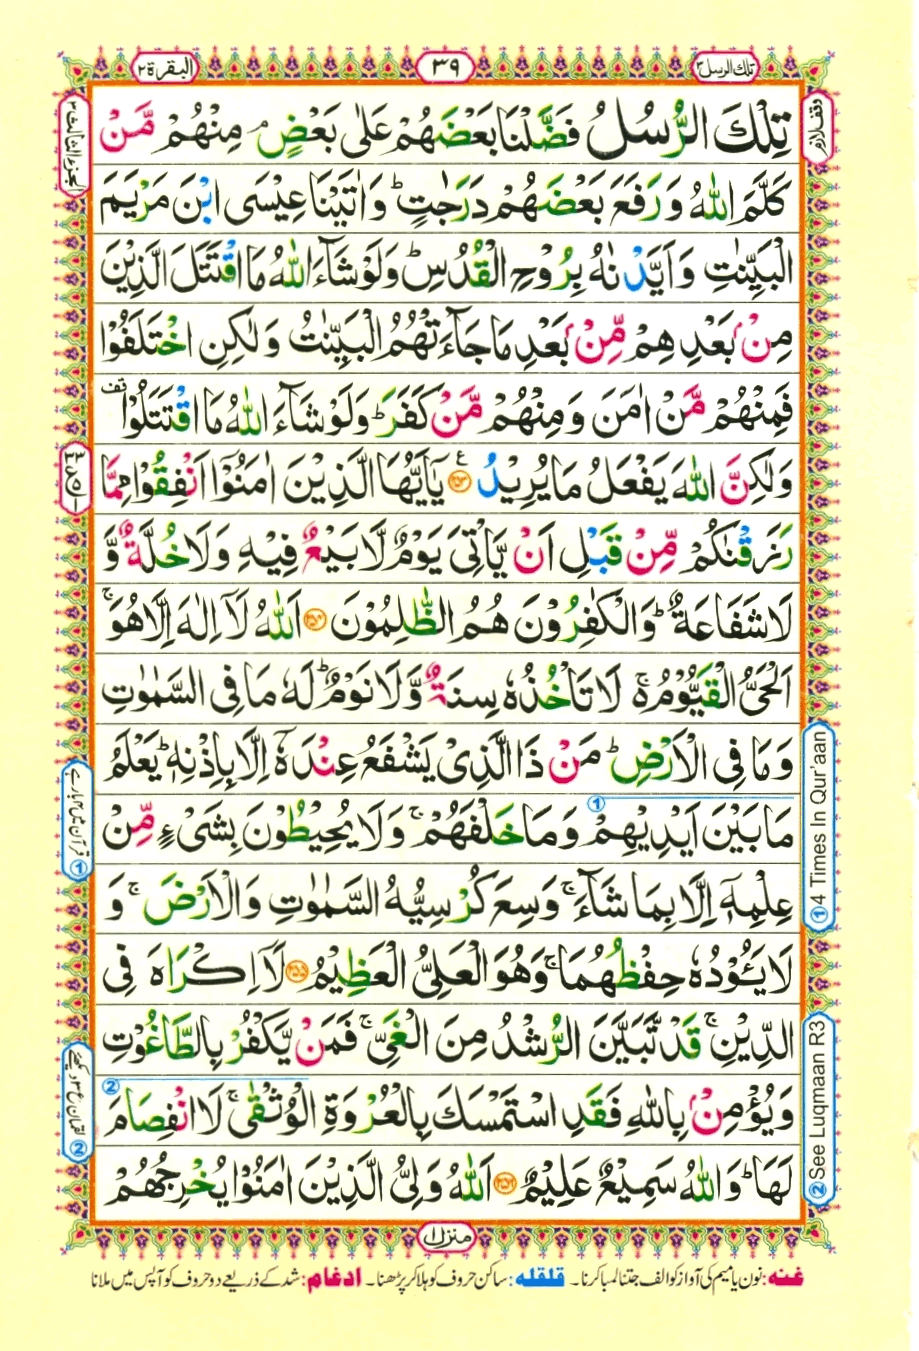 البقرة ٢
٣٩
تلك الرسل ٣
وقف لازم
الجزء الثالث ٣
تِلْكَ الرُّسُلُ فَضَّلْنَا بَعْضَهُمْ عَلٰى بَعْضٍ ۘ مِنْهُمْ مَّنْ
كَلَّمَ اللّٰهُ وَرَفَعَ بَعْضَهُمْ دَرَجٰتٍ ؕ وَاٰتَيْنَا عِيْسَى ابْنَ مَرْيَمَ
الْبَيِّنٰتِ وَاَيَّدْنٰهُ بِرُوْحِ الْقُدُسِ ؕ وَلَوْ شَآءَ اللّٰهُ مَا اقْتَتَلَ الَّذِيْنَ
مِنْۢ بَعْدِهِمْ مِّنْۢ بَعْدِ مَا جَآءَتْهُمُ الْبَيِّنٰتُ وَلٰكِنِ اخْتَلَفُوْا
فَمِنْهُمْ مَّنْ اٰمَنَ وَمِنْهُمْ مَّنْ كَفَرَ ؕ وَلَوْ شَآءَ اللّٰهُ مَا اقْتَتَلُوْا قف
وَلٰكِنَّ اللّٰهَ يَفْعَلُ مَا يُرِيْدُ ﴿٢٥٣﴾ ع يٰۤاَيُّهَا الَّذِيْنَ اٰمَنُوْۤا اَنْفِقُوْا مِمَّا
رَزَقْنٰكُمْ مِّنْ قَبْلِ اَنْ يَّاْتِىَ يَوْمٌ لَّا بَيْعٌ فِيْهِ وَلَا خُلَّةٌ وَّ
لَا شَفَاعَةٌ ؕ وَالْكٰفِرُوْنَ هُمُ الظّٰلِمُوْنَ ﴿٢٥٤﴾ اَللّٰهُ لَاۤ اِلٰهَ اِلَّا هُوَ ۚ
اَلْحَىُّ الْقَيُّوْمُ ۬ۚ لَا تَاْخُذُهٗ سِنَةٌ وَّلَا نَوْمٌ ؕ لَهٗ مَا فِى السَّمٰوٰتِ
وَمَا فِى الْاَرْضِ ؕ مَنْ ذَا الَّذِىْ يَشْفَعُ عِنْدَهٗۤ اِلَّا بِاِذْنِهٖ ؕ يَعْلَمُ
مَا بَيْنَ اَيْدِيْهِمْ وَمَا خَلْفَهُمْ ۚ وَلَا يُحِيْطُوْنَ بِشَىْءٍ مِّنْ
عِلْمِهٖۤ اِلَّا بِمَا شَآءَ ۚ وَسِعَ كُرْسِيُّهُ السَّمٰوٰتِ وَالْاَرْضَ ۚ وَ
لَا يَئُوْدُهٗ حِفْظُهُمَا ۚ وَهُوَ الْعَلِىُّ الْعَظِيْمُ ﴿٢٥٥﴾ لَاۤ اِكْرَاهَ فِى
الدِّيْنِ ۚ قَدْ تَّبَيَّنَ الرُّشْدُ مِنَ الْغَىِّ ۚ فَمَنْ يَّكْفُرْ بِالطَّاغُوْتِ
وَيُؤْمِنْۢ بِاللّٰهِ فَقَدِ اسْتَمْسَكَ بِالْعُرْوَةِ الْوُثْقٰى ۚ لَا انْفِصَامَ
لَهَا ؕ وَاللّٰهُ سَمِيْعٌ عَلِيْمٌ ﴿٢٥٦﴾ اَللّٰهُ وَلِىُّ الَّذِيْنَ اٰمَنُوْا يُخْرِجُهُمْ
① 4 Times In Qur'aan
② See Luqmaan R3
منزل ١
غنه: نون یا میم کی آواز کو الف جتنا لمبا کرنا۔ قلقله: ساکن حروف کو ہلا کر پڑھنا۔ ادغام: شد کے ذریعے دو حروف کو آپس میں ملانا